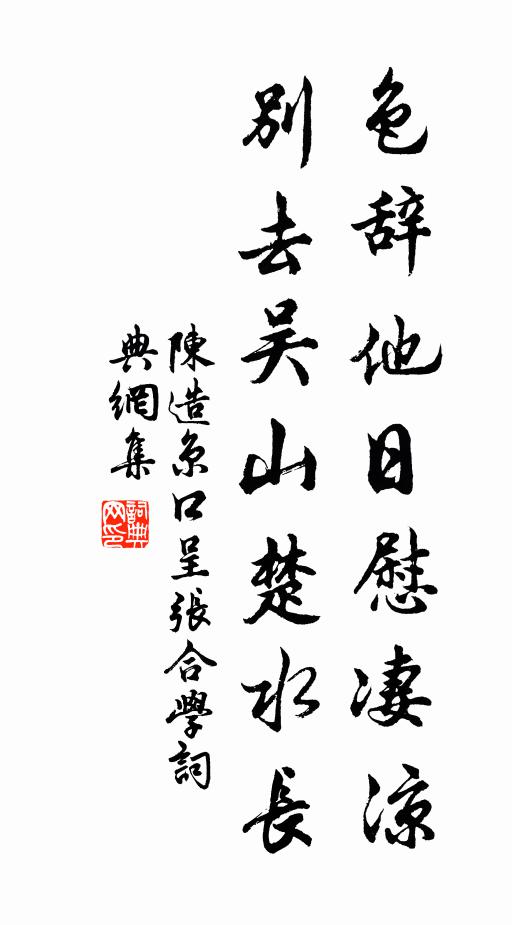 色辞他日慰凄凉
別去吴山楚水長
陳造京口呈張合學詞
典網集
詞典
网印